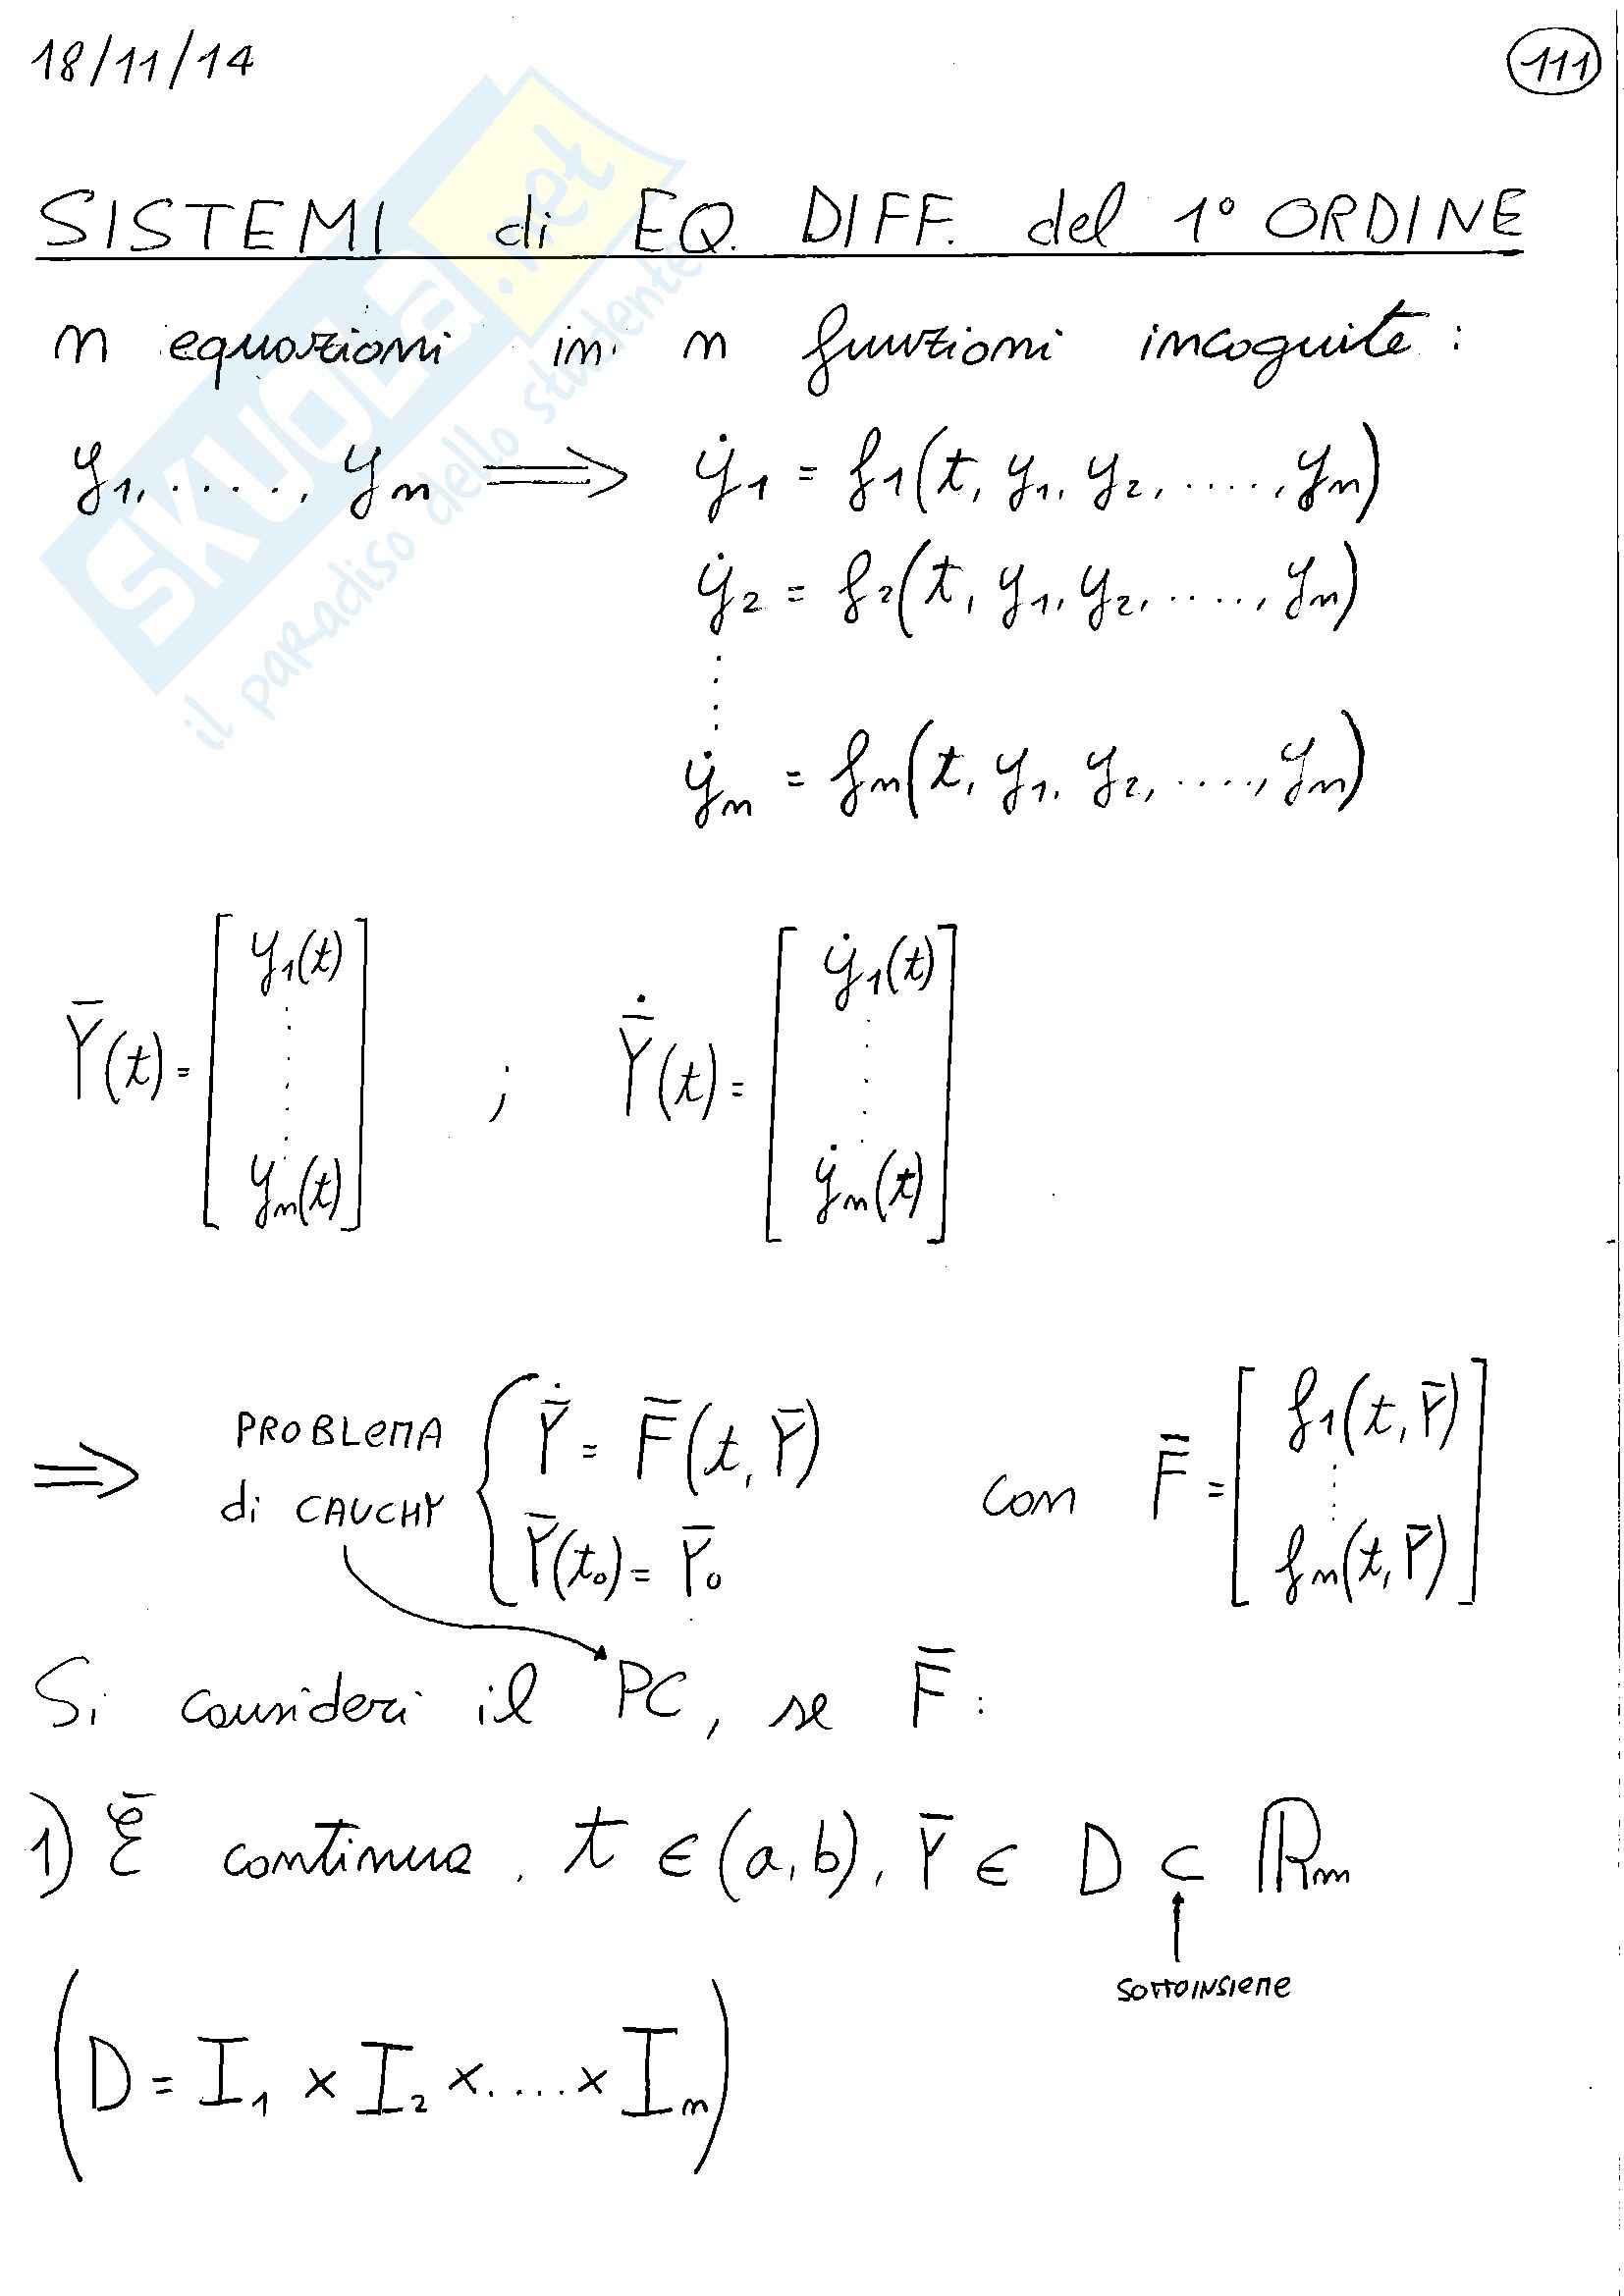 18/11/14
111
SISTEMI di EQ. DIFF. del 1° ORDINE
n equazioni in n funzioni incognite:
y₁, ....., yₙ ⟹ ẏ₁ = f₁(t, y₁, y₂, ...., yₙ)
ẏ₂ = f₂(t, y₁, y₂, ...., yₙ)
⋮
ẏₙ = fₙ(t, y₁, y₂, ...., yₙ)
Ȳ(t) = [y₁(t) ⋮ yₙ(t)] ; Ȳ̇(t) = [ẏ₁(t) ⋮ ẏₙ(t)]
⟹ PROBLEMA di CAUCHY { Ȳ̇ = F̄(t, Ȳ)
Ȳ(t₀) = Ȳ₀
con F̄ = [f₁(t, Ȳ) ⋮ fₙ(t, Ȳ)]
Si consideri il PC, se F̄:
1) È continua, t ∈ (a, b), Ȳ ∈ D ⊂ ℝₙ
SOTTOINSIEME
(D = I₁ × I₂ × .... × Iₙ)
SKUOLA.net
il paradiso dello studente